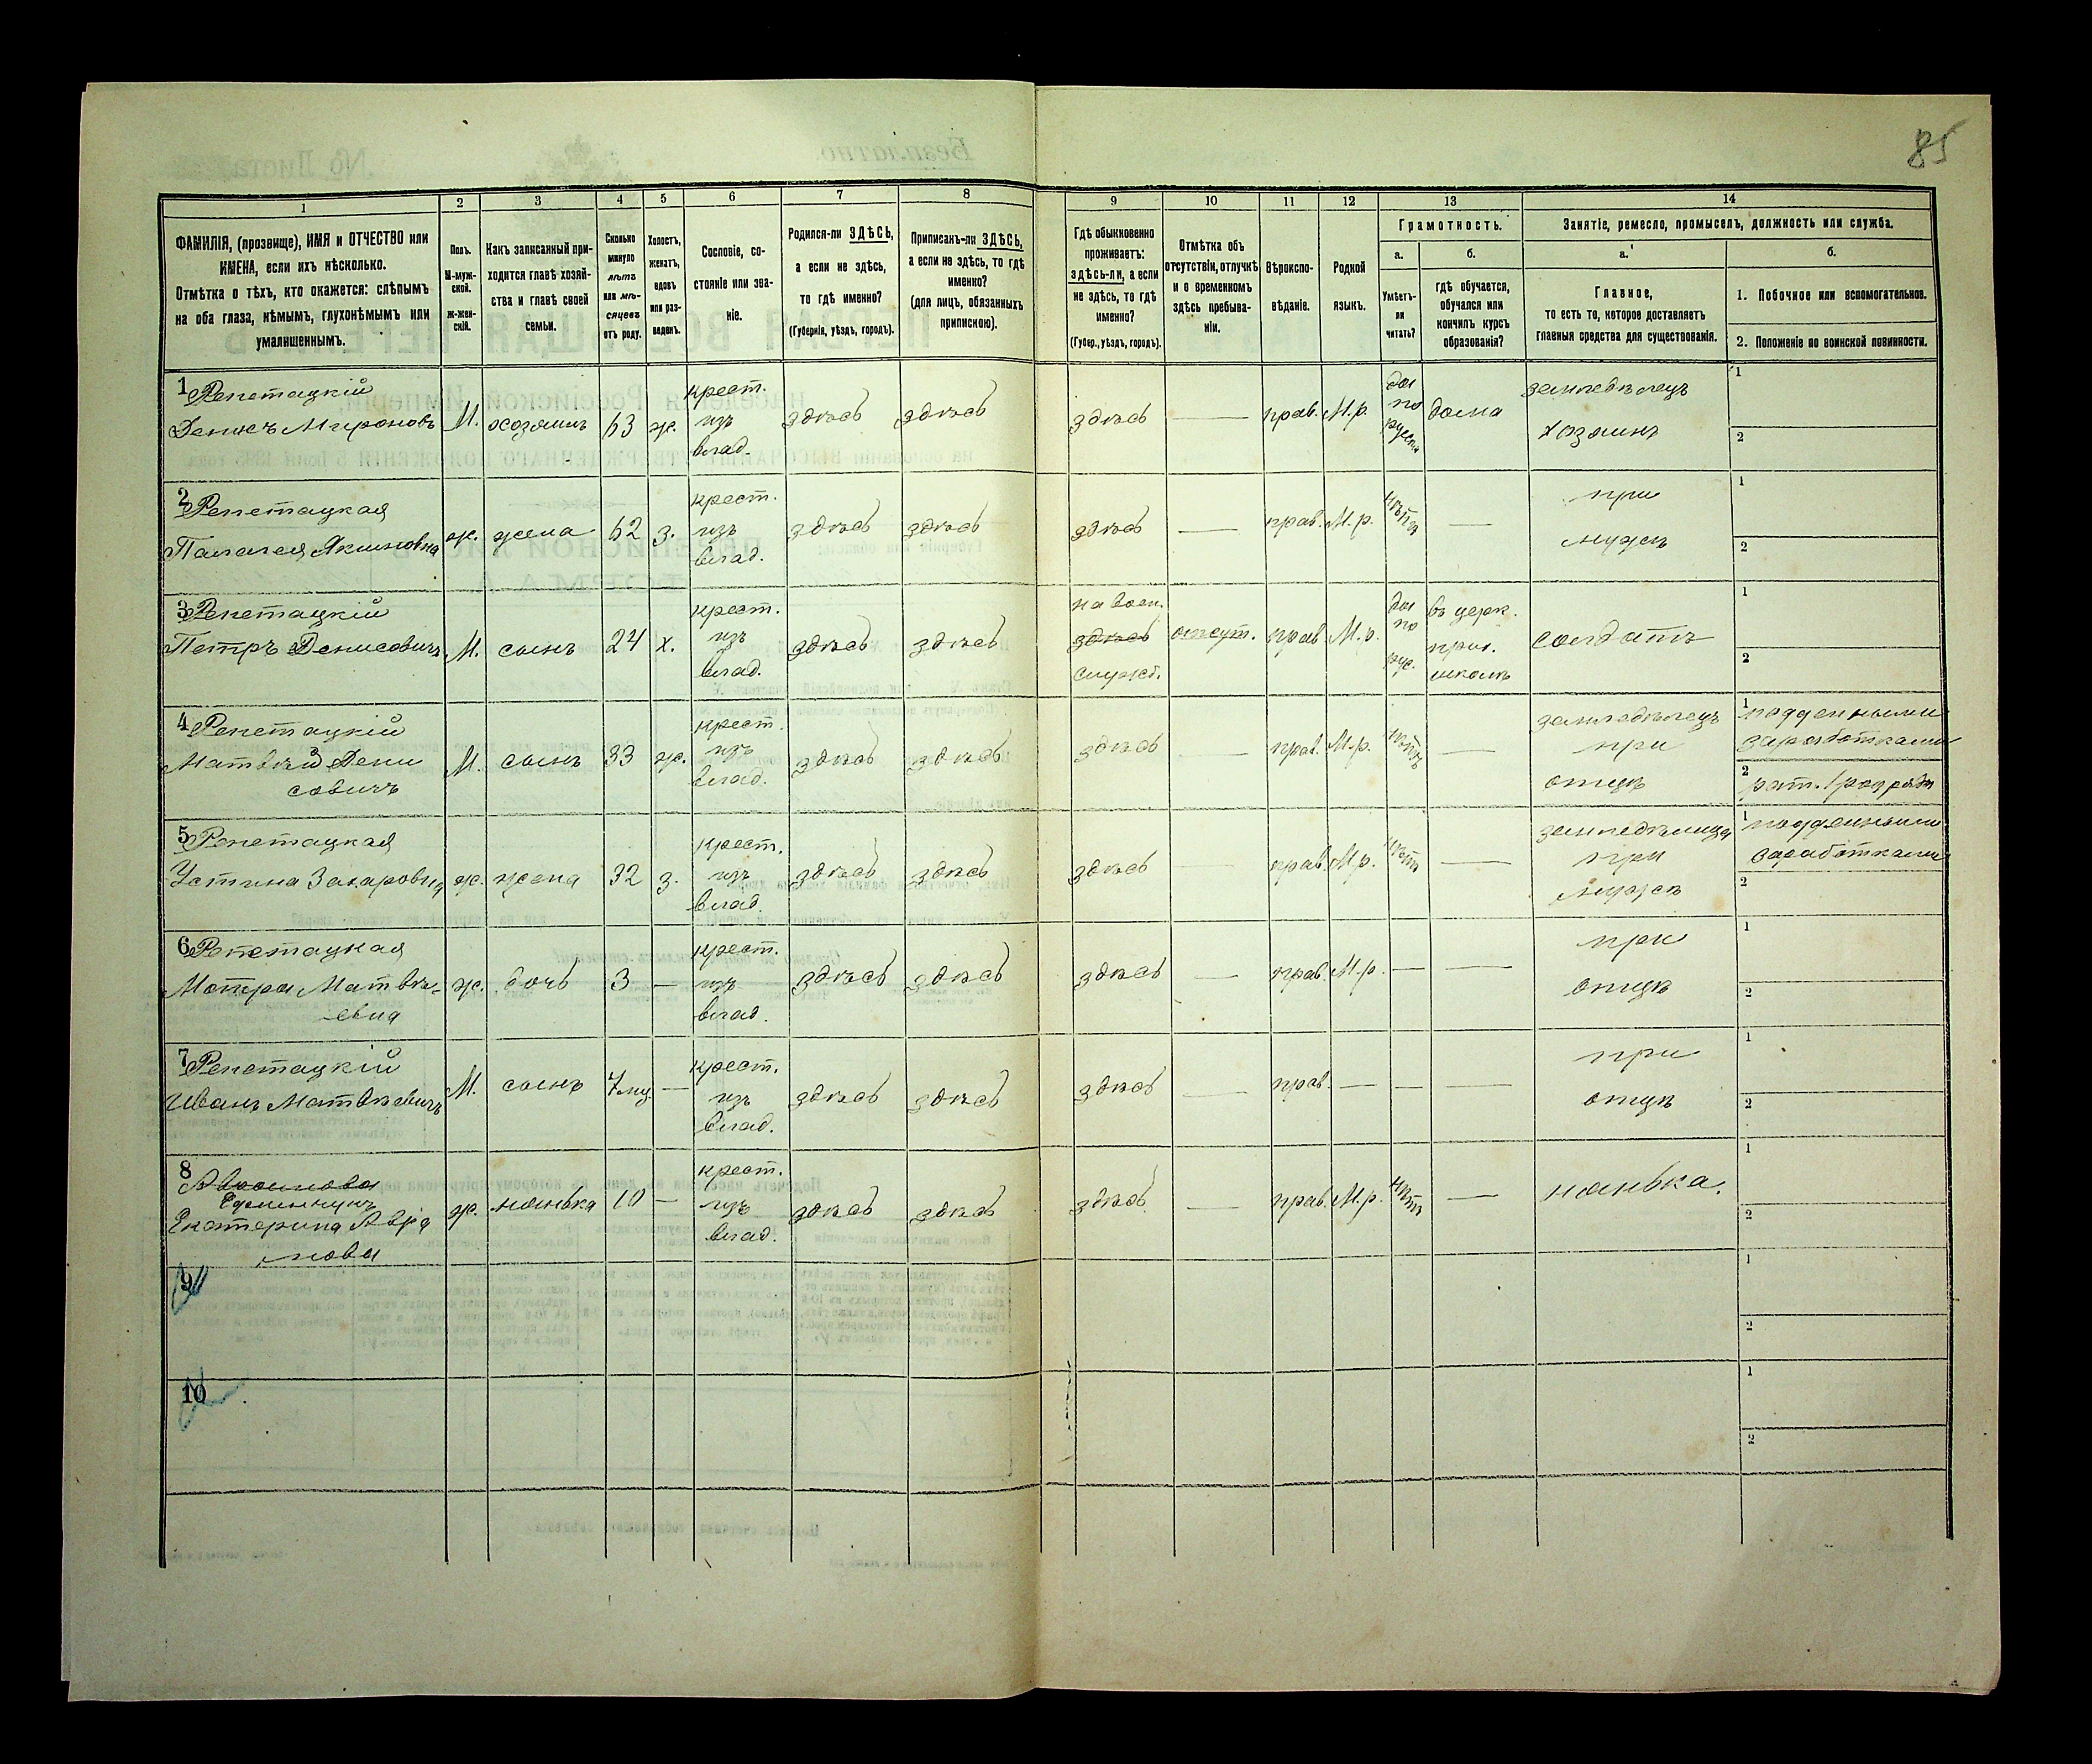 85
1 2 3 4 5 6 7 8 9 10 11 12 13 14
ФАМИЛІЯ, (прозвище), ИМЯ и ОТЧЕСТВО или ИМЕНА, если ихъ нѣсколько.
Отмѣтка о тѣхъ, кто окажется: слѣпымъ на оба глаза, нѣмымъ, глухонѣмымъ или умалишеннымъ.
Полъ.
М-мужской.
Ж-женскій.
Какъ записанный приходится главѣ хозяйства и главѣ своей семьи.
Сколько минуло лѣтъ или мѣсяцевъ отъ роду.
Холостъ, женатъ, вдовъ или разведенъ.
Сословіе, состояніе или званіе.
Родился-ли ЗДѢСЬ, а если не здѣсь, то гдѣ именно?
(Губернія, уѣздъ, городъ).
Приписанъ-ли ЗДѢСЬ, а если не здѣсь, то гдѣ именно?
(для лицъ, обязанныхъ припискою).
Гдѣ обыкновенно проживаетъ: здѣсь-ли, а если не здѣсь, то гдѣ именно?
(Губер., уѣздъ, городъ).
Отмѣтка объ отсутствіи, отлучкѣ и о временномъ здѣсь пребываніи.
Вѣроисповѣданіе.
Родной языкъ.
Грамотность.
а.
Умѣетъ-ли читать?
б.
гдѣ обучается, обучался или кончилъ курсъ образованія?
Занятіе, ремесло, промыселъ, должность или служба.
а.
Главное,
то есть то, которое доставляетъ главныя средства для существованія.
б.
1. Побочное или вспомогательное.
2. Положеніе по воинской повинности.
1 Репетацкій
Денисъ Мироновъ М. хозяинъ 63 ж. крест. изъ влад. здѣсь здѣсь здѣсь — прав. М.р. да по русски дома земледѣлецъ хозяинъ 1 2
2 Репетацкая
Палагея Якимовна ж. жена 62 з. крест. изъ влад. здѣсь здѣсь здѣсь — прав. М.р. нѣтъ — при мужѣ 1 2
3 Репетацкій
Петръ Денисовичъ М. сынъ 24 х. крест. изъ влад. здѣсь здѣсь на воен. здѣсь служб. отсут. прав. М.р. да по рус. въ церк. прих. школѣ солдатъ 1 2
4 Репетацкій
Матвѣй Дени
совичъ М. сынъ 33 ж. крест. изъ влад. здѣсь здѣсь здѣсь — прав. М.р. нѣтъ — земледѣлецъ при отцѣ 1 подденными заработками 2 рат. 1 разряда
5 Репетацкая
Устина Захаровна ж. жена 32 з. крест. изъ влад. здѣсь здѣсь здѣсь — прав. М.р. нѣтъ — земледѣлица при мужѣ 1 подденными заработками 2
6 Репетацкая
Мотра Матвѣ-
евна ж. дочь 3 — крест. изъ влад. здѣсь здѣсь здѣсь — прав. М.р. — — при отцѣ 1 2
7 Репетацкій
Иванъ Матвѣевичъ М. сынъ 7 мц. — крест. изъ влад. здѣсь здѣсь здѣсь — прав. — — — при отцѣ 1 2
8
Екатерина Авра
мова ж. нянька 10 — крест. изъ влад. здѣсь здѣсь здѣсь — прав. М.р. нѣтъ — нянька. 1 2
9 1 2
10 1 2